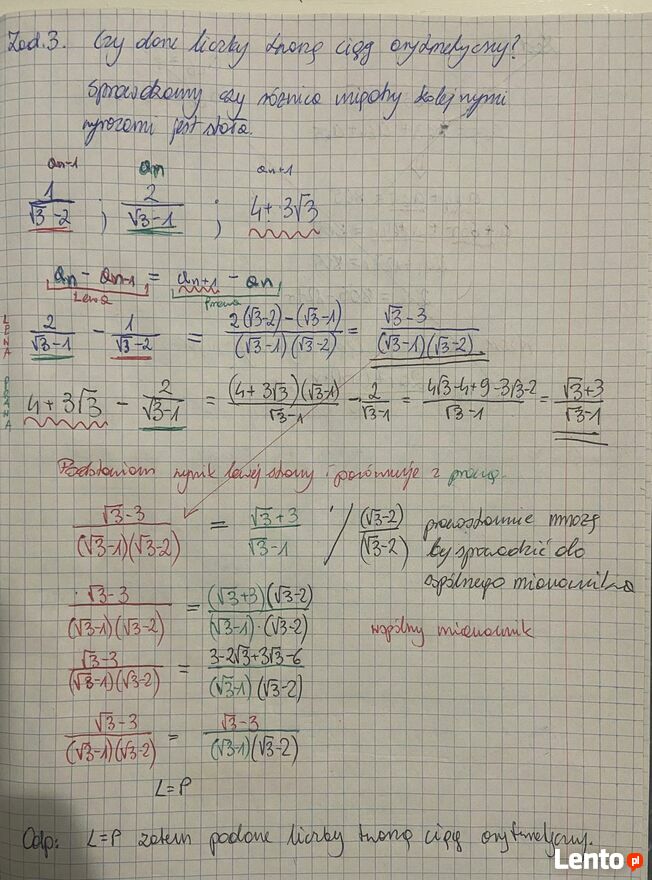 Zad.3. Czy dane liczby tworzą ciąg arytmetyczny?
Sprawdzamy czy różnica między kolejnymi
wyrazami jest stała.
an-1 an an+1
1/(√3-2) ; 2/(√3-1) ; 4+3√3
an - an-1 = an+1 - an
Lewa Prawa
LEWA 2/(√3-1) - 1/(√3-2) = (2(√3-2)-(√3-1))/((√3-1)(√3-2)) = (√3-3)/((√3-1)(√3-2))
PRAWA 4+3√3 - 2/(√3-1) = ((4+3√3)(√3-1))/(√3-1) - 2/(√3-1) = (4√3-4+9-3√3-2)/(√3-1) = (√3+3)/(√3-1)
Podstawiam wynik lewej strony i porównuję z prawą.
(√3-3)/((√3-1)(√3-2)) = (√3+3)/(√3-1) / (√3-2)/(√3-2) prawostronnie mnożę
by sprowadzić do
wspólnego mianownika
(√3-3)/((√3-1)(√3-2)) = ((√3+3)(√3-2))/((√3-1)·(√3-2)) wspólny mianownik
(√3-3)/((√3-1)(√3-2)) = (3-2√3+3√3-6)/((√3-1)(√3-2))
(√3-3)/((√3-1)(√3-2)) = (√3-3)/((√3-1)(√3-2))
L=P
Odp: L=P zatem podane liczby tworzą ciąg arytmetyczny.
Lento.pl